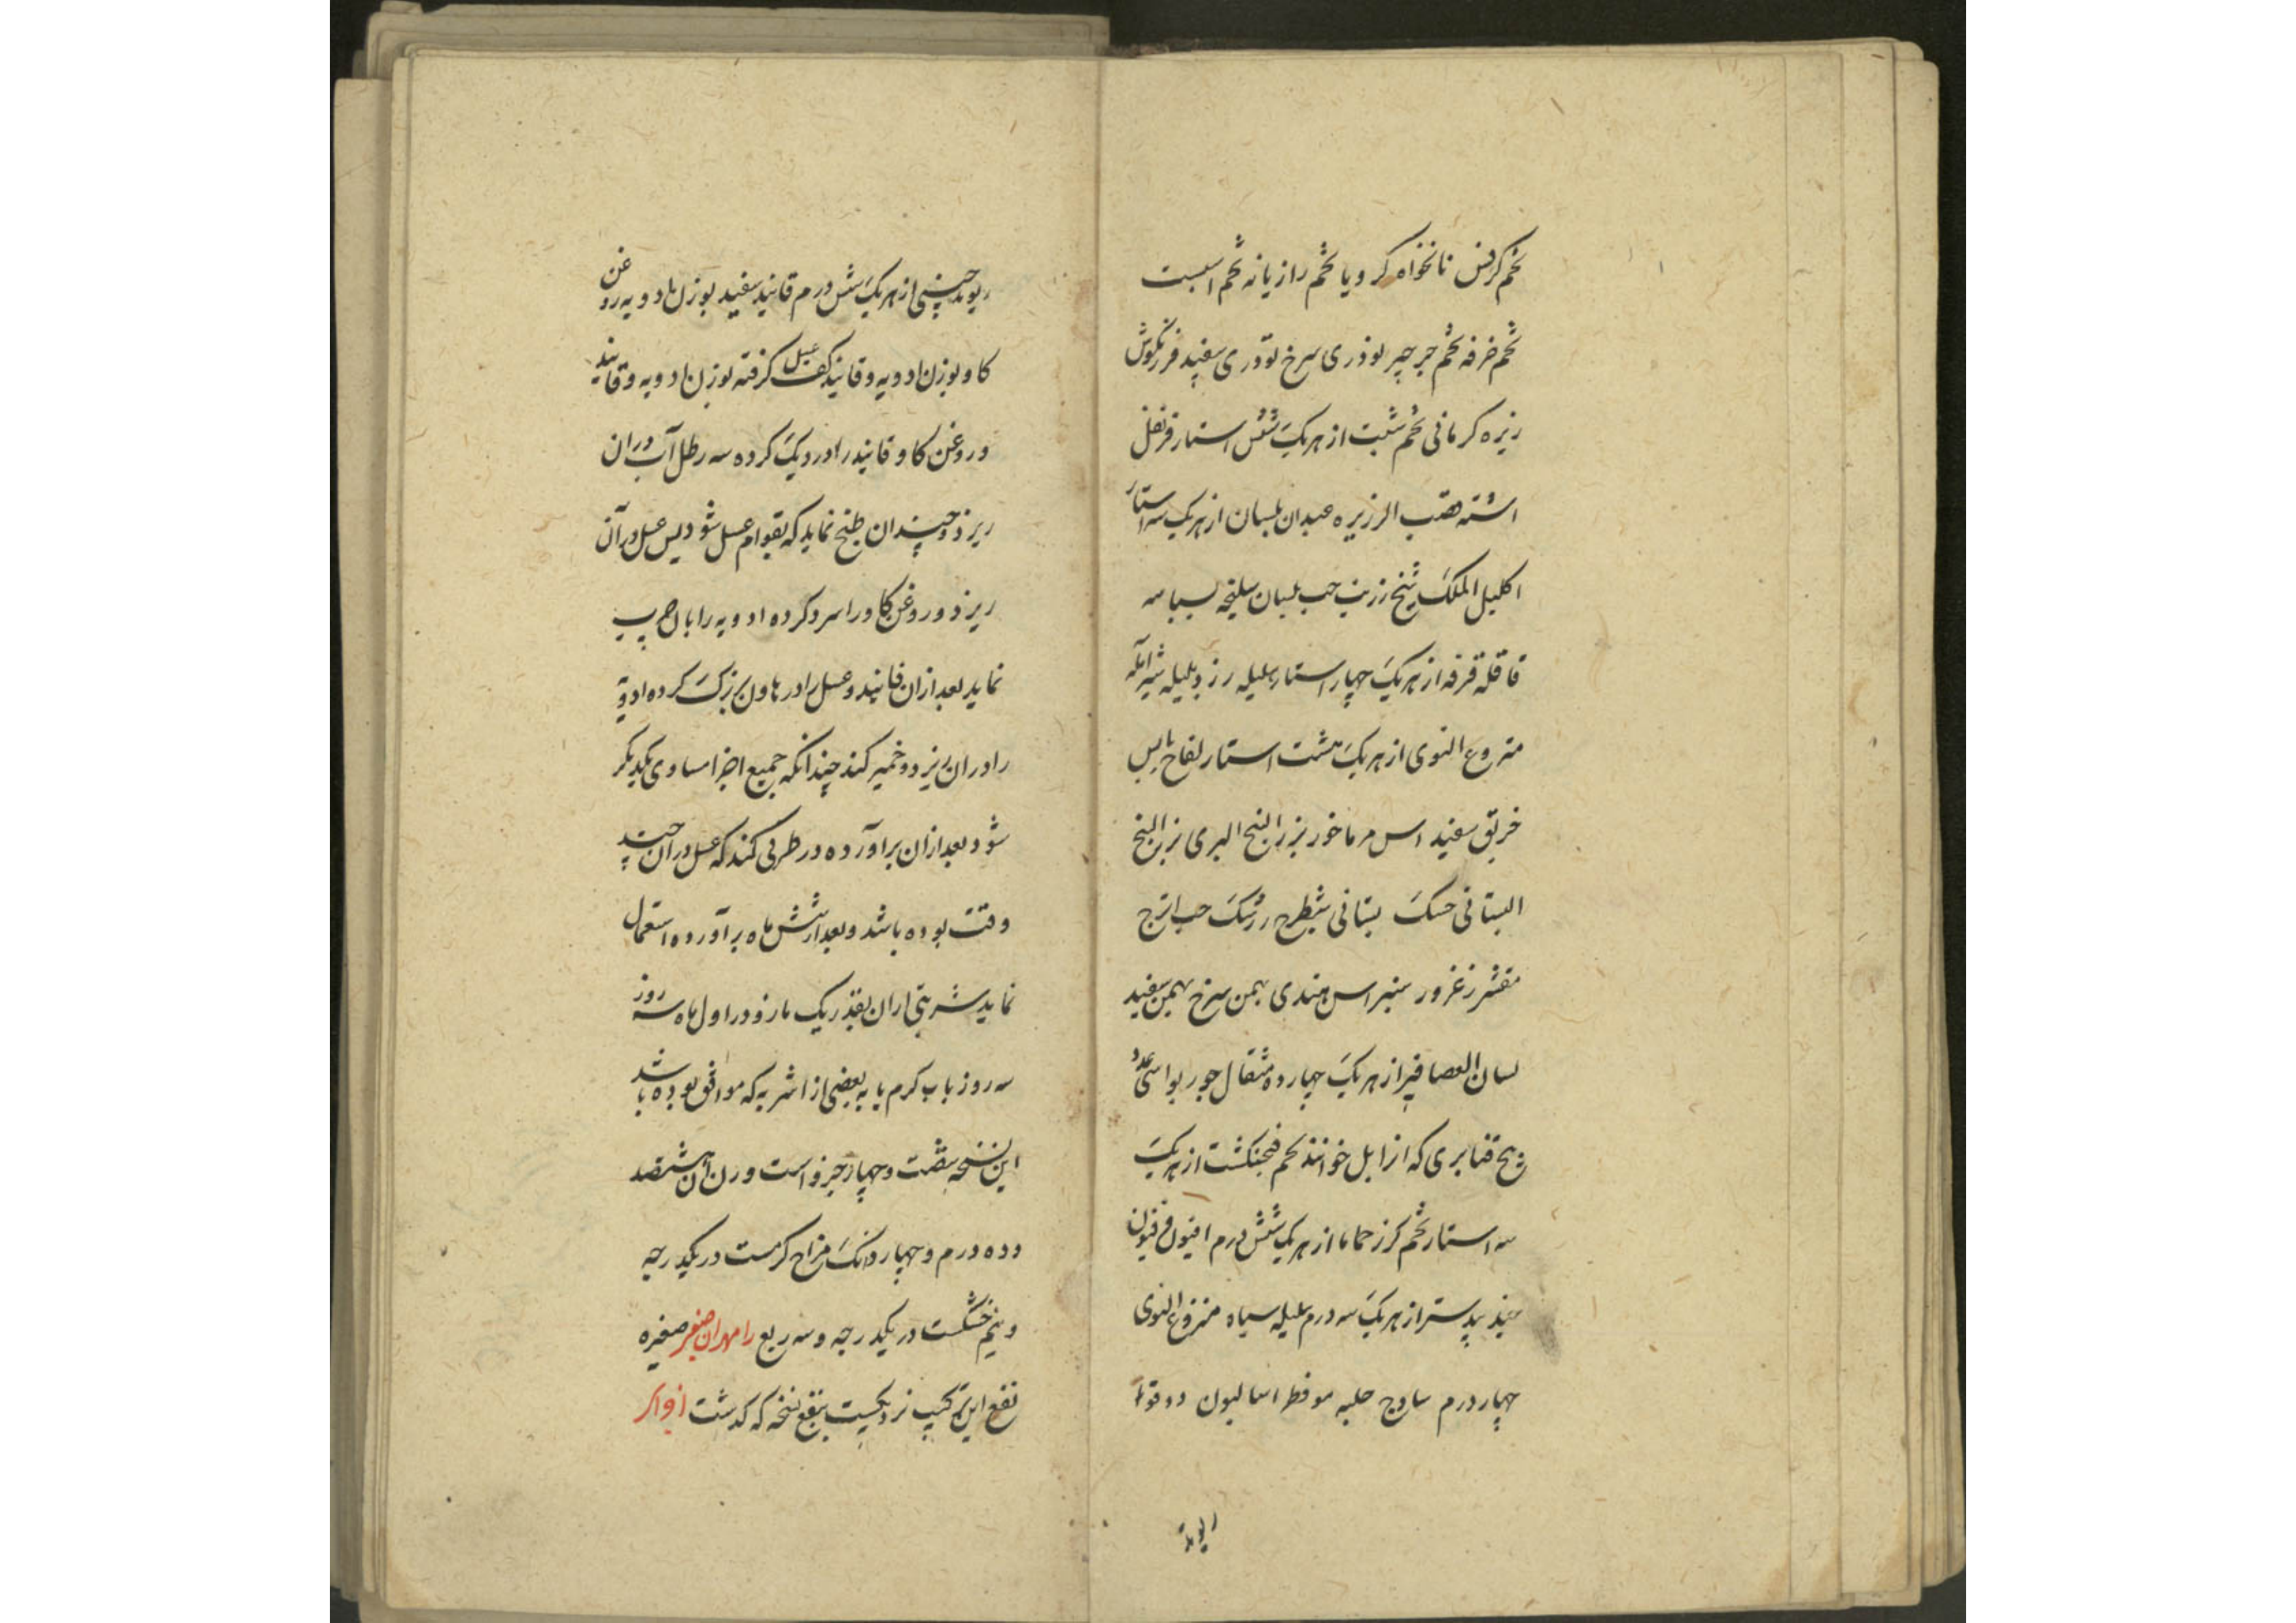 تخم کرفس نانخواه کرویا تخم رازیانه تخم اسبست
تخم خرفه تخم جرجیر تودری سرخ تودری سفید مرزنکوش
زیره کرمانی تخم شبت از هریک شش استار قرنفل
اشنه قصب الزریره عیدان بلسان از هریک سه استار
اکلیل الملک شیخ زرنب حب بلسان سلیخه بسباسه
قاقله قرفه از هریک چهار استار هلیله زرد بلیله شیر آمله
منزوع النوی از هریک هشت استار لفاح یابس
خربق سفید اس مرماخور بزر البنج البری بزر البنج
البستانی حسک بستانی شیطرج زرشک حب اترج
مقشر زعرور سنبراس هندی بهمن سرخ بهمن سفید
لسان العصافیر از هریک چهارده مثقال جوز بوا سی عدد
بیخ قنابری که انرا بل خوانند تخم فنجنکشت از هریک
سه استار تخم کرز حماما از هریک شش درم افیون فرفیون
جندبیدستر از هریک سه درم هلیله سیاه منزوع النوی
چهار درم ساذج حلبه موقطر اسالیون دوقوا
ریوند
ریوند چینی از هریک شش درم فانید سفید بوزن ادویه روغن
کاو بوزن ادویه و فانید عسل کف کرفته بوزن ادویه و فانید
و روغن کاو فانید را در دیک کرده سه رطل آب دران
ریزد و چندان طبخ نماید که بقوام عسل شود پس عسل در آن
ریزد و روغن کاو را سرد کرده ادویه را بان چرب
نماید بعد ازان فانید و عسل را در هاون بزرک کرده ادویه
را دران ریزد و خمیر کند چندانکه جمیع اجزا مساوی یکدیکر
شود بعد ازان برآورده در ظرفی کند که عسل در آن چند
وقت بوده باشد و بعد از شش ماه برآورده استعمال
نماید شربتی ازان بقدر یک مازو در اول ماه سه روز
سه روز باب کرم یا به بعضی از اشربه که موافق بوده باشد
این نسخه شصت و چهار جزو است وزن آن هشتصد
و ده درم و چهار دانک مزاج کرمست در یکدرجه
و نیم خشکست در یکدرجه و سه ربع رامهران صغیر صغیره
نفع این ترکیب نزدیکست بنفع نسخه که کذشت افراز